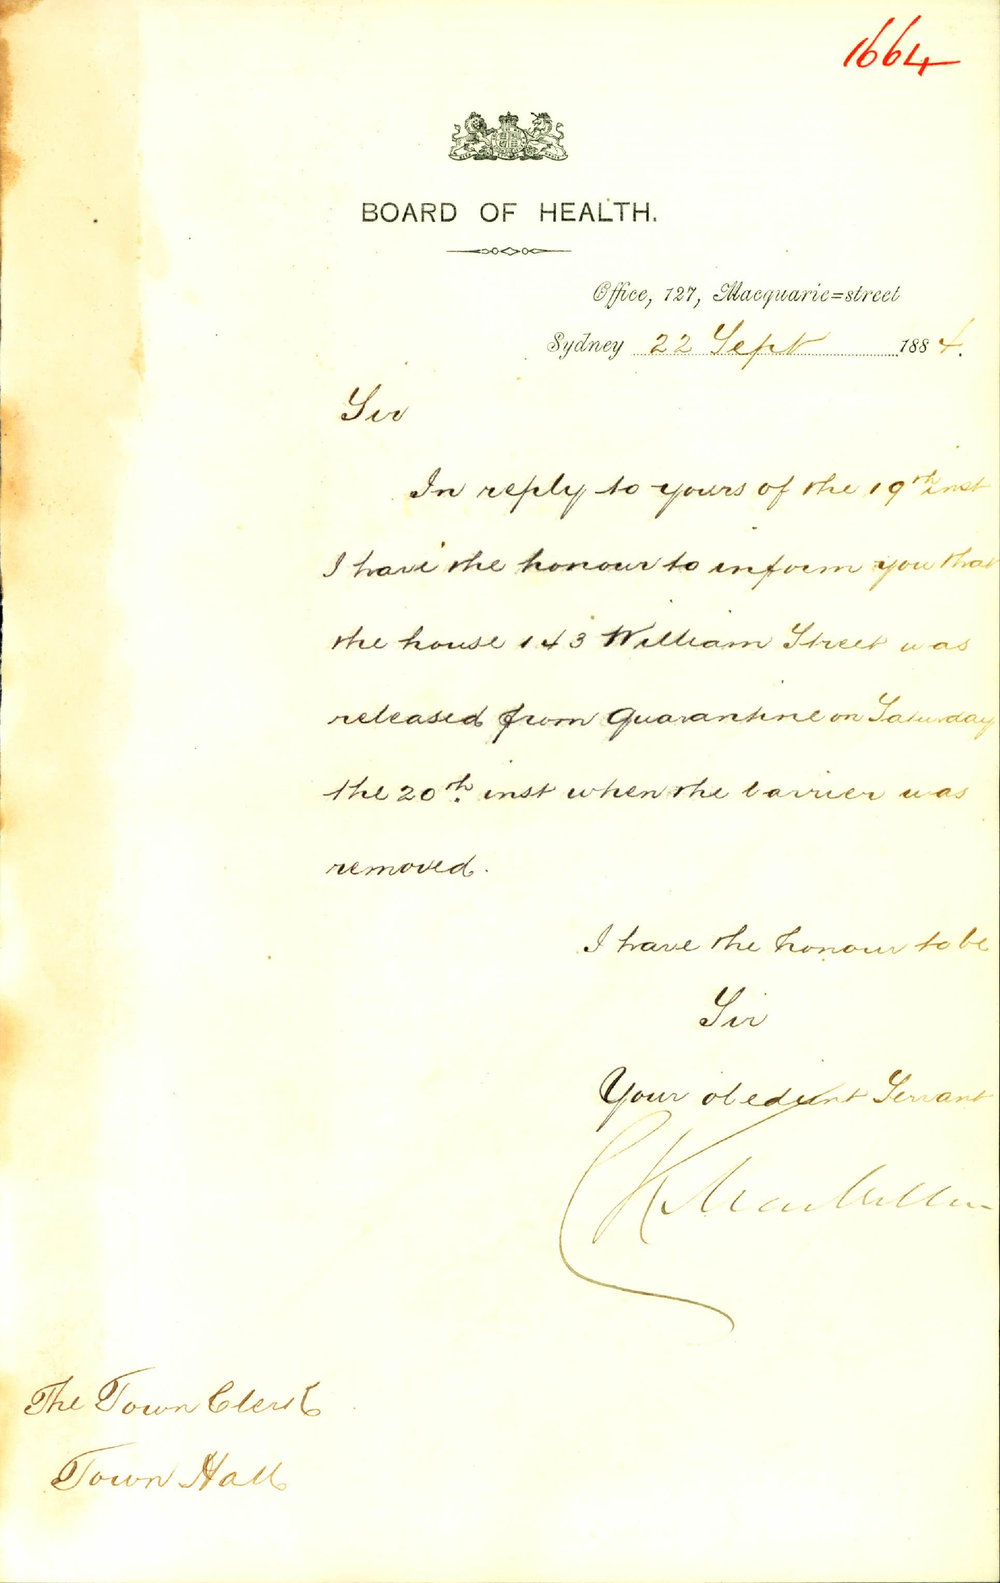 1664
BOARD OF HEALTH.
Office, 127, Macquarie=street
Sydney 22 Sept 1884.
Sir
In reply to yours of the 19th inst
I have the honour to inform you that
the house 143 William Street was
released from Quarantine on Saturday
the 20th. inst when the barrier was
removed.
I have the honour to be
Sir
Your obedient Servant
The Town Clerk
Town Hall